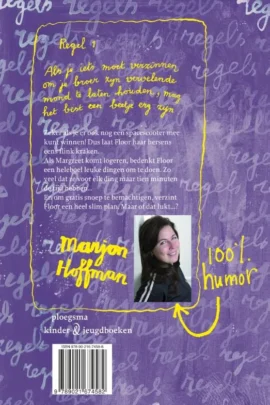 Regel 1
Als je iets moet verzinnen
om je broer zijn vervelende
mond te laten houden, mag
het best een beetje erg zijn
kunt winnen! Dus laat Floor haar hersens
een flink kraken.
Als Margreet komt logeren, bedenkt Floor
een heleboel leuke dingen om te doen. Zo
veel dat ze voor elk ding maar tien minuten
de tijd hebben...
En om gratis snoep te bemachtigen, verzint
Floor een heel slim plan. Maar of dat lukt...?
Marjon
Hoffman
100%
humor
ploegsma
kinder & jeugdboeken